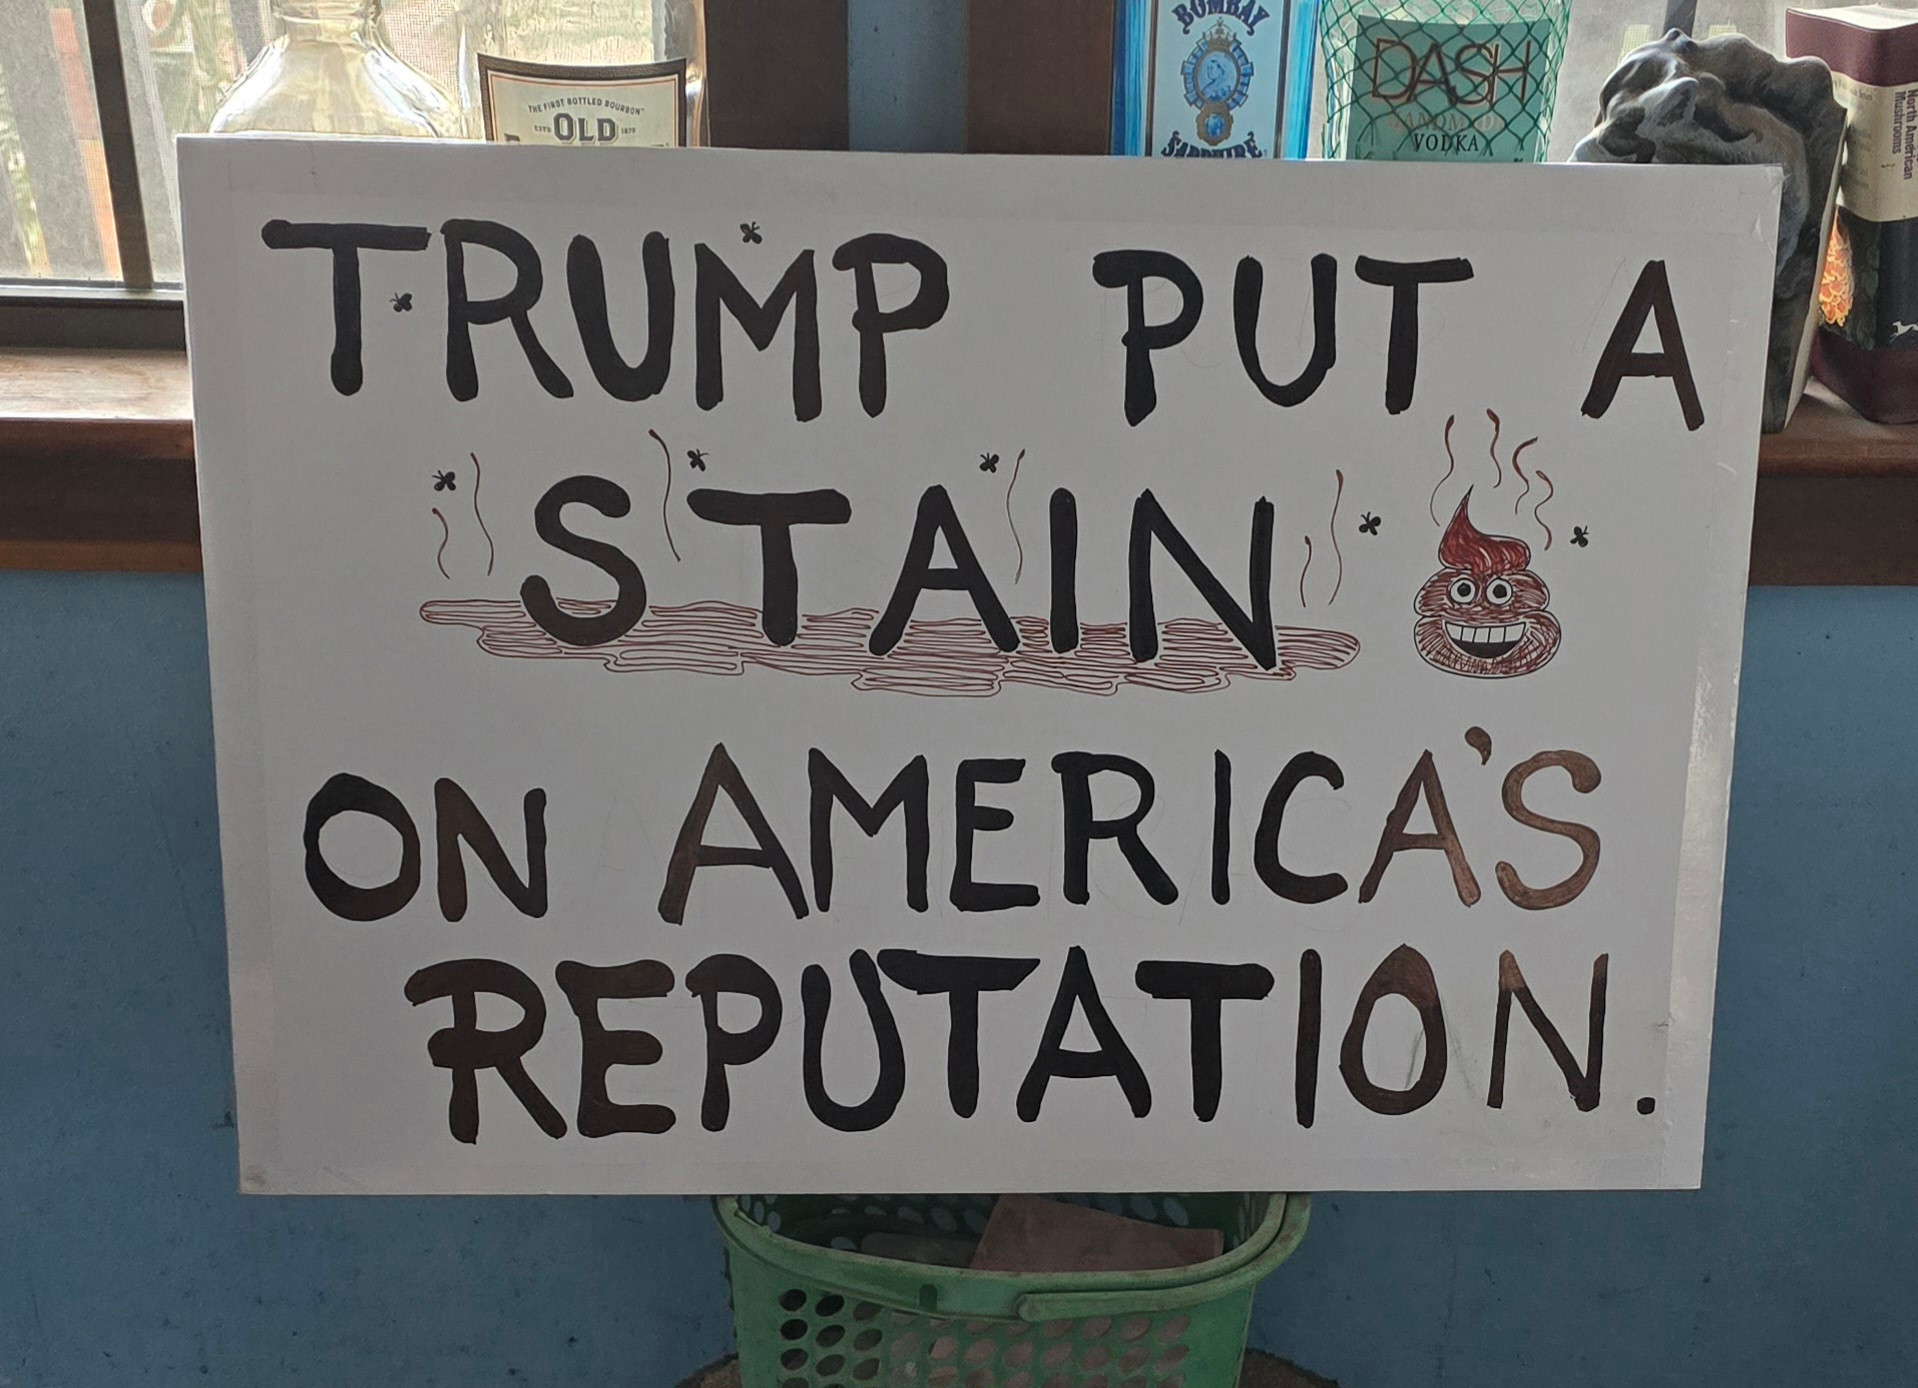 THE FIRST BOTTLED BOURBON™
ESTD OLD 1870
BOMBAY
SAPPHIRE
DASH
HANDMADE
VODKA
North American
Mushrooms
TRUMP PUT A
STAIN
ON AMERICA'S
REPUTATION.